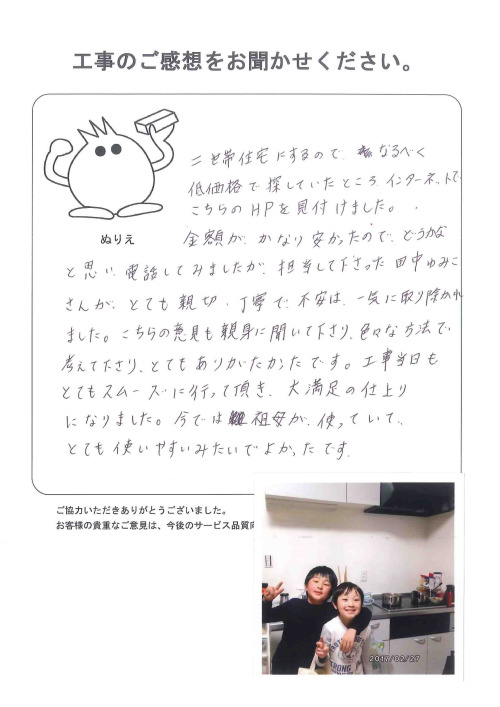 工事のご感想をお聞かせください。
二世帯住宅にするので、なるべく
低価格で探していたところ、インターネットで
こちらのHPを見付けました。
ぬりえ
金額が、かなり安かったので、どうかな
と思い、電話してみましたが、担当して下さった田中ゆみこ
さんが、とても親切、丁寧で、不安は、一気に取り除かれ
ました。こちらの意見も親身に聞いて下さり、色々な方法で
考えて下さり、とてもありがたかったです。工事当日も
とてもスムーズに行って頂き、大満足の仕上り
になりました。今では祖母が、使っていて、
とても使いやすいみたいでよかったです。
ご協力いただきありがとうございました。
お客様の貴重なご意見は、今後のサービス品質向
STRONG
2017/02/27